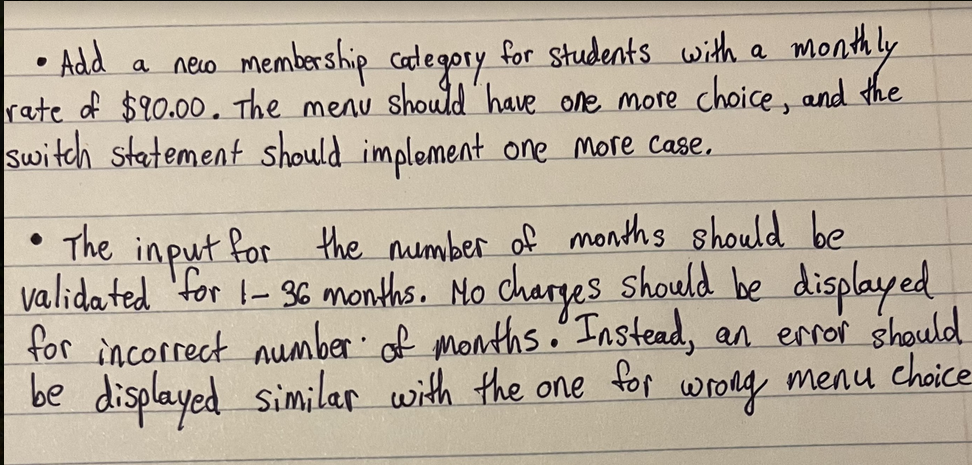 • Add a new membership category for students with a monthly
rate of $90.00. The menu should have one more choice, and the
switch statement should implement one more case.
• The input for the number of months should be
validated for 1-36 months. No charges should be displayed
for incorrect number of months. Instead, an error should
be displayed similar with the one for wrong menu choice